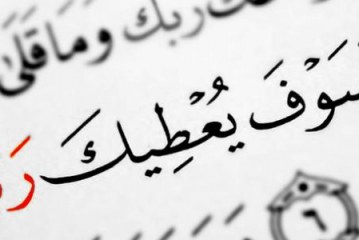 ربك وما قَلَىٰ
سَوْفَ يُعْطِيكَ رَ
٦